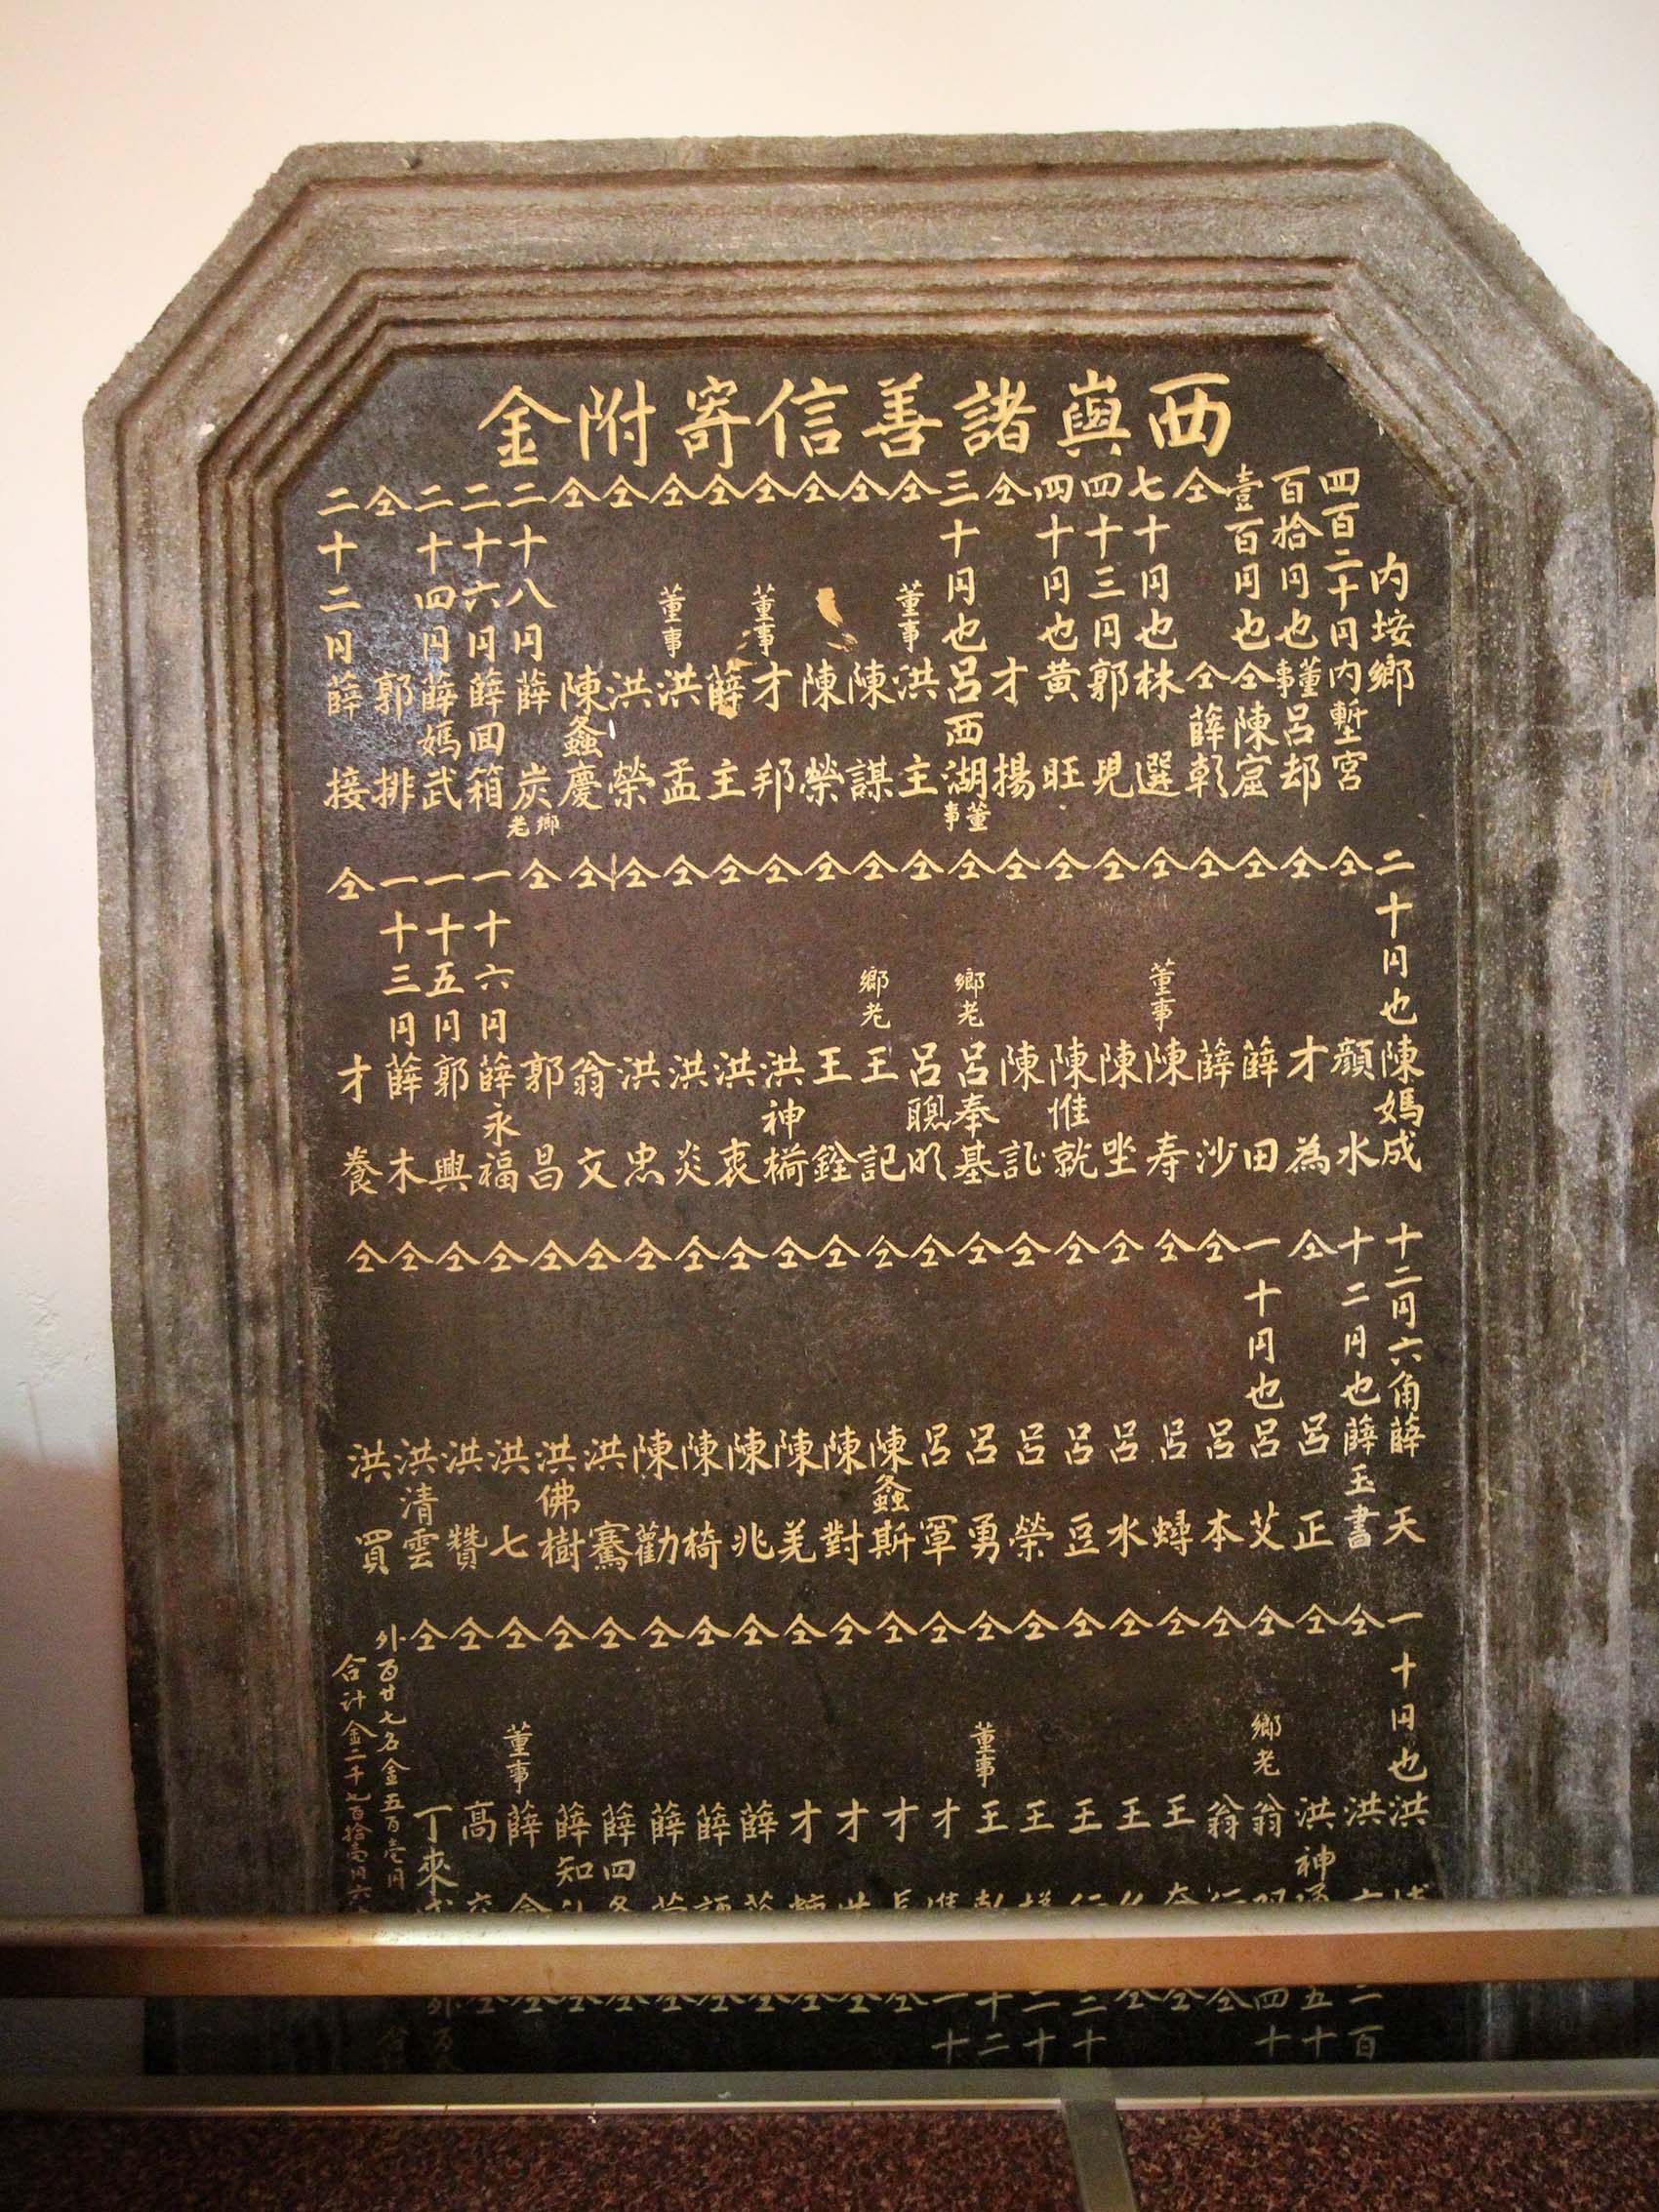 西嶼諸善信寄附金
内垵鄉
四百二十円内塹宮
百拾円也董事呂却
壹百円也仝陳窟
仝仝薛彰
七十円也林選
四十三円郭兕
四十円也黄旺
仝才揚
三十円也呂西湖董事
仝董事洪主
仝陳謀
仝陳榮
仝董事才邦
仝薛主
仝董事洪孟
仝洪榮
仝陳螽慶
二十八円薛炭鄉老
二十六円薛回箱
二十四円薛媽武
仝郭排
二十二円薛接
二十円也陳媽成
仝顏水
仝才為
仝薛田
仝薛沙
仝董事陳寿
仝陳坐
仝陳惟就
仝陳訨
仝鄉老呂奉基
仝呂聰明
仝鄉老王記
仝王銓
仝洪神䕃
仝洪衷
仝洪炎
仝洪忠
仝翁文
仝郭昌
一十六円薛永福
一十五円郭興
一十三円薛木
仝才養
十二円六角薛天
十二円也薛玉書
仝呂正
一十円也呂艾
仝呂本
仝呂蟳
仝呂水
仝呂豆
仝呂榮
仝呂勇
仝呂罩
仝陳螽斯
仝陳對
仝陳羌
仝陳兆
仝陳椅
仝陳勸
仝洪騫
仝洪佛樹
仝洪七
仝洪贊
仝洪清雲
仝洪買
一十円也洪
仝洪
仝洪神
仝鄉老翁
仝翁
仝王
仝王
仝王
仝王
仝董事王
仝才
仝才
仝才
仝才
仝薛
仝薛
仝薛
仝薛四
仝薛知
仝董事薛
仝高
仝丁來
外百廿七名金五百壱円
合計金二千七百拾円六